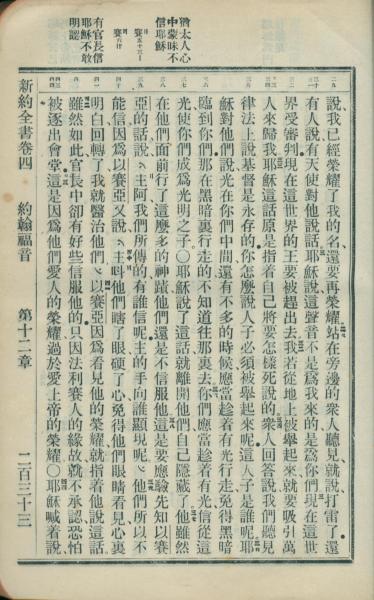 猶太人心
中蒙昧不
信耶穌
賽五十三一
賽六十
有官長信
耶穌不敢
明認
說我已經榮耀了我的名還要再榮耀站在旁邊的衆人聽見就說打雷了還
有人說有天使對他說話耶穌說這聲音不是爲我來的是爲你們現在這世
界受審判現在這世界的王要被趕出去我若從地上被舉起來就要吸引萬
人來歸我耶穌這話原是指着自己將要怎樣死說的衆人回答說我們聽見
律法上說基督是永存的你怎麼說人子必須被舉起來呢這人子是誰呢耶
穌對他們說光在你們中間還有不多的時候應當趁着有光行走免得黑暗
臨到你們那在黑暗裏行走的不知道往那裏去你們應當趁着有光信從這
光使你們成爲光明之子○耶穌說了這話就離開他們自己隱藏了他雖然
在他們面前行了這麼多的神蹟他們還是不信服他這是要應驗先知以賽
亞的話說主阿我們所傳的有誰信呢主的手向誰顯現呢他們所以不
能信因爲以賽亞又說主呌他們瞎了眼硬了心免得他們眼睛看見心裏
明白回轉了我就醫治他們以賽亞因爲看見他的榮耀就指着他說這話
雖然如此官長中卻有好些信服他的只因法利賽人的緣故就不承認恐怕
被逐出會堂這是因爲他們愛人的榮耀過於愛上帝的榮耀○耶穌喊着說
新約全書卷四 約翰福音 第十二章 二百三十三